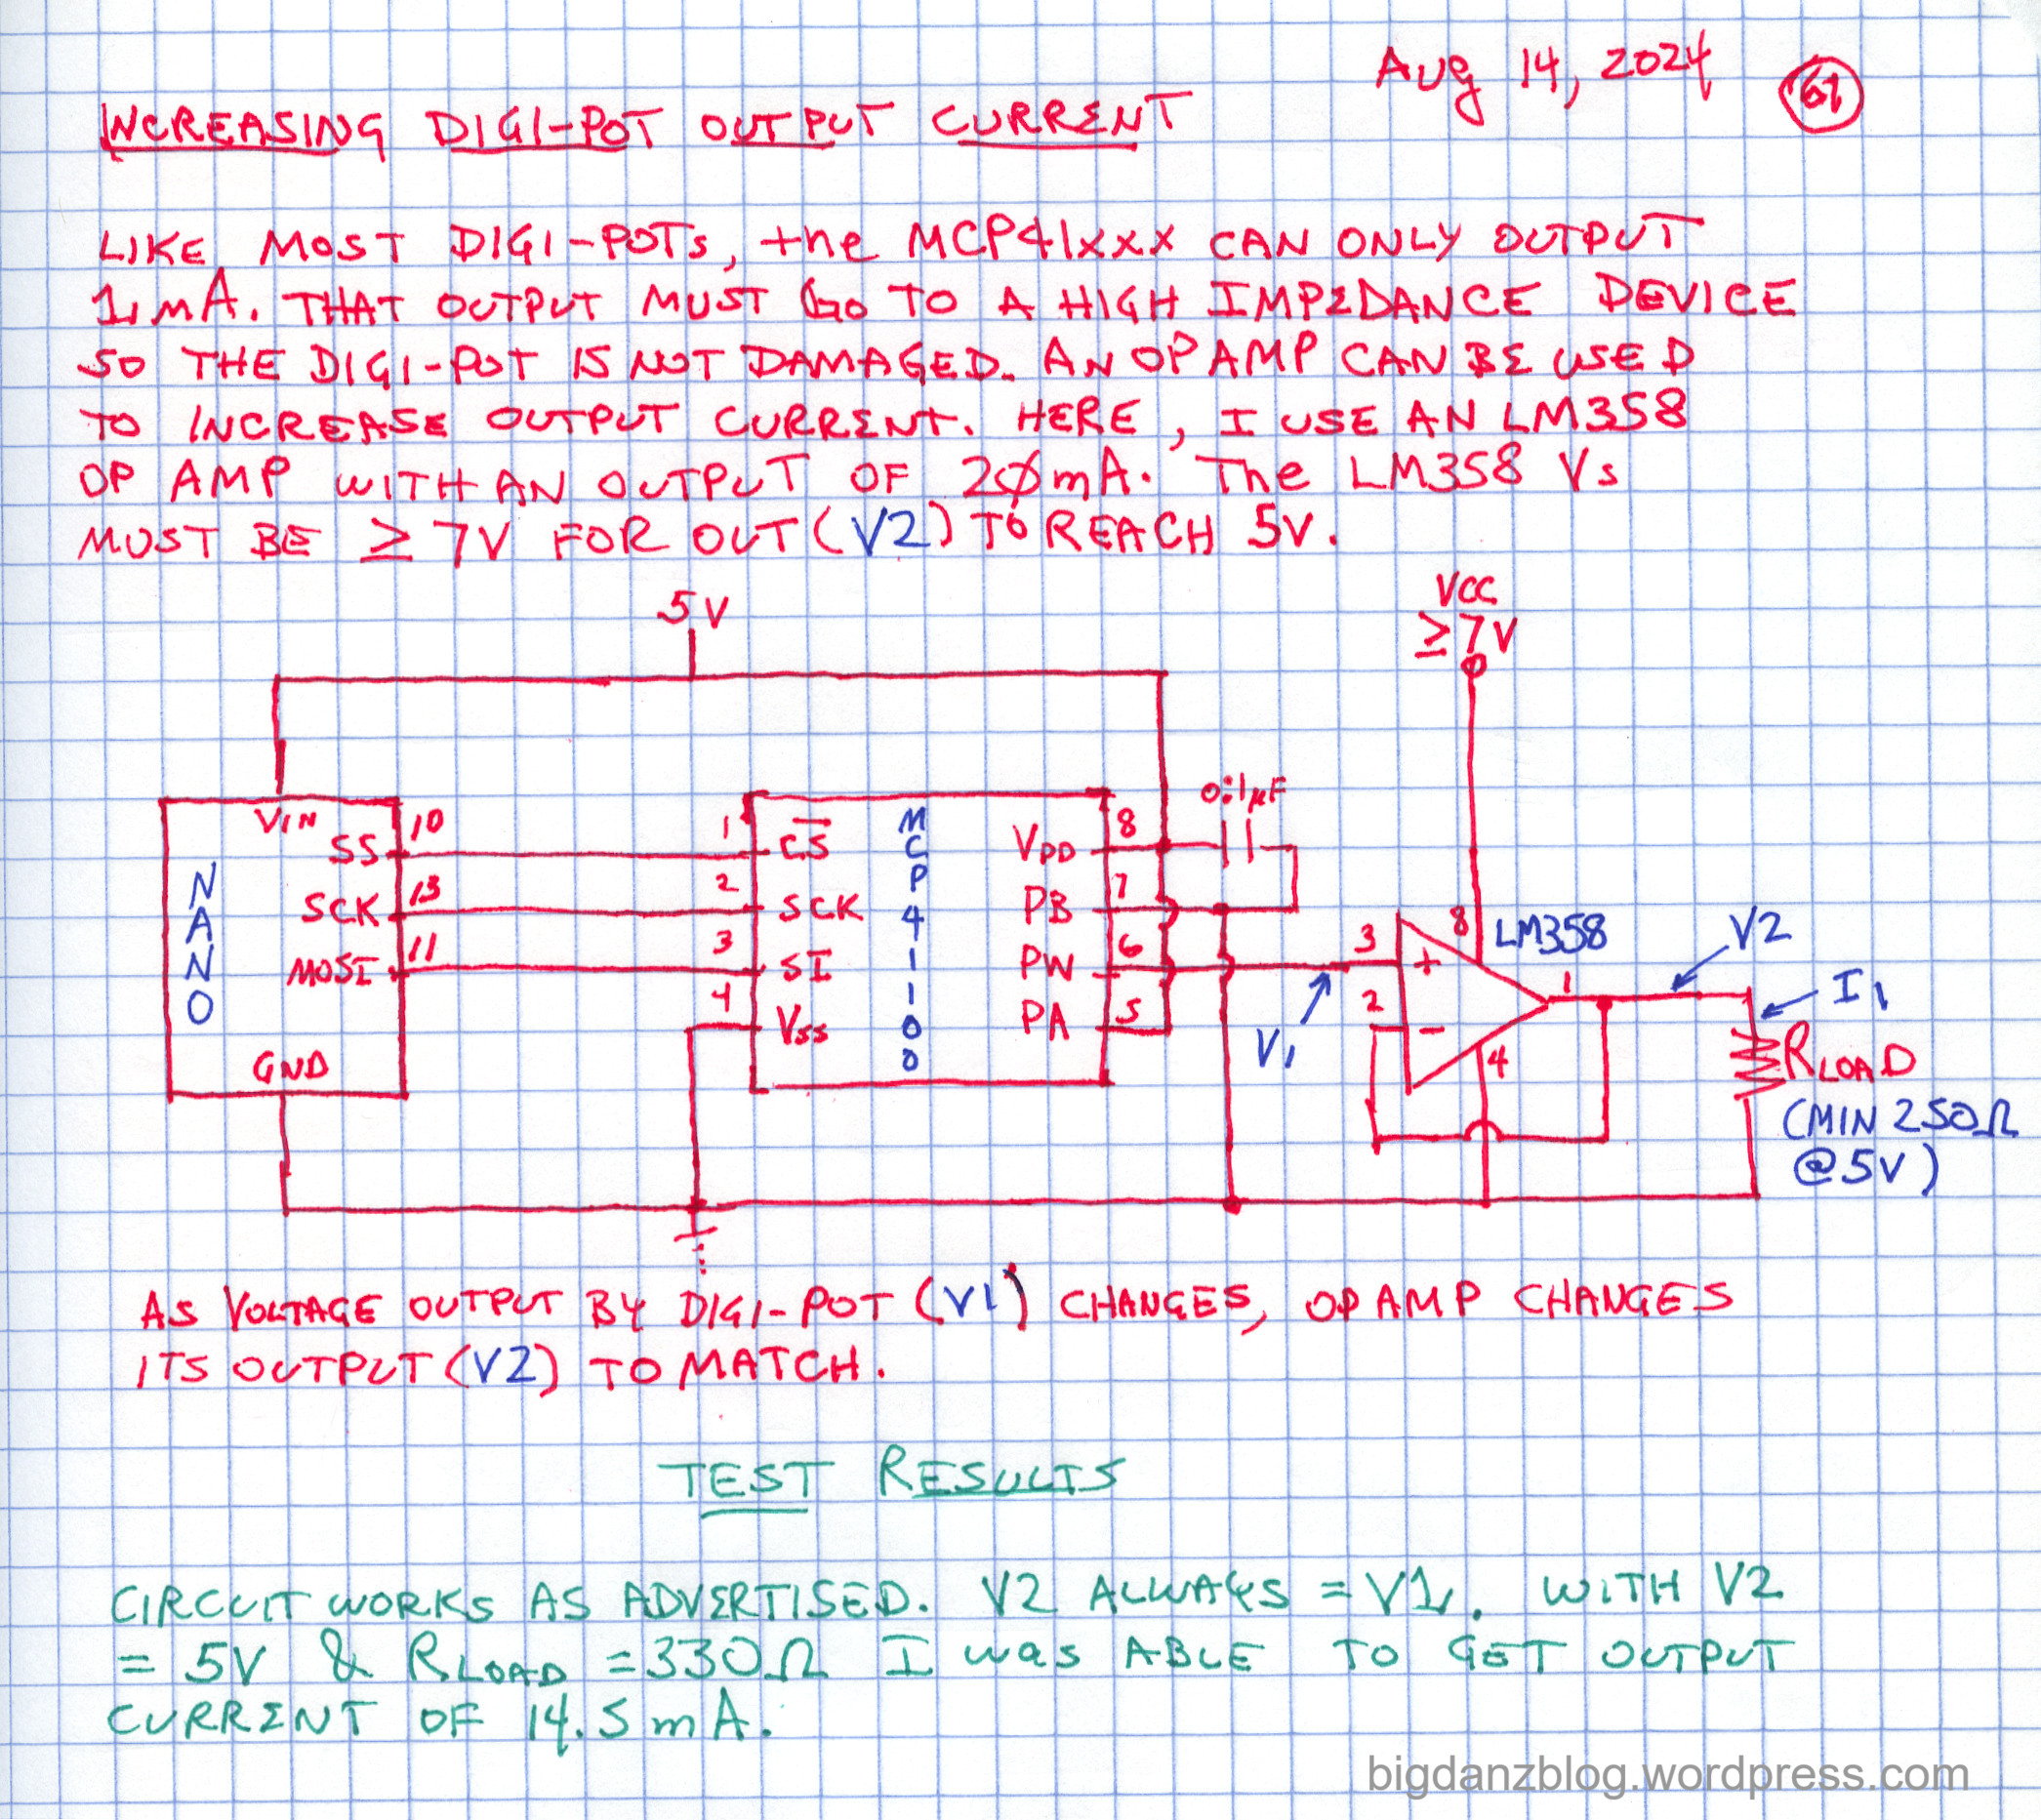 Aug 14, 2024
INCREASING DIGI-POT OUTPUT CURRENT
LIKE MOST DIGI-POTs, the MCP41xxx CAN ONLY OUTPUT
1mA. THAT OUTPUT MUST GO TO A HIGH IMPEDANCE DEVICE
SO THE DIGI-POT IS NOT DAMAGED. AN OP AMP CAN BE USED
TO INCREASE OUTPUT CURRENT. HERE, I USE AN LM358
OP AMP WITH AN OUTPUT OF 20mA. The LM358 Vs
MUST BE ≥ 7V FOR OUT (V2) TO REACH 5V.
5V
VCC
≥7V
NANO
VIN
SS 10
SCK 13
MOSI 11
GND
MCP41100
1 CS
2 SCK
3 SI
4 VSS
VDD 8
PB 7
PW 6
PA 5
0.1µF
V1
3 +
2 -
8
4
1
LM358
V2
I1
RLOAD
(MIN 250Ω
@5V)
AS VOLTAGE OUTPUT BY DIGI-POT (V1) CHANGES, OP AMP CHANGES
ITS OUTPUT (V2) TO MATCH.
TEST RESULTS
CIRCUIT WORKS AS ADVERTISED. V2 ALWAYS = V1. WITH V2
= 5V & RLOAD = 330Ω I was ABLE TO GET OUTPUT
CURRENT OF 14.5mA.
bigdanzblog.wordpress.com